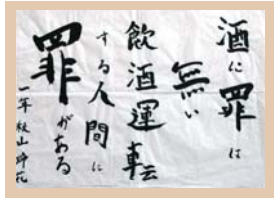 酒に罪は
無い
飲酒運転
する人間に
罪がある
一年